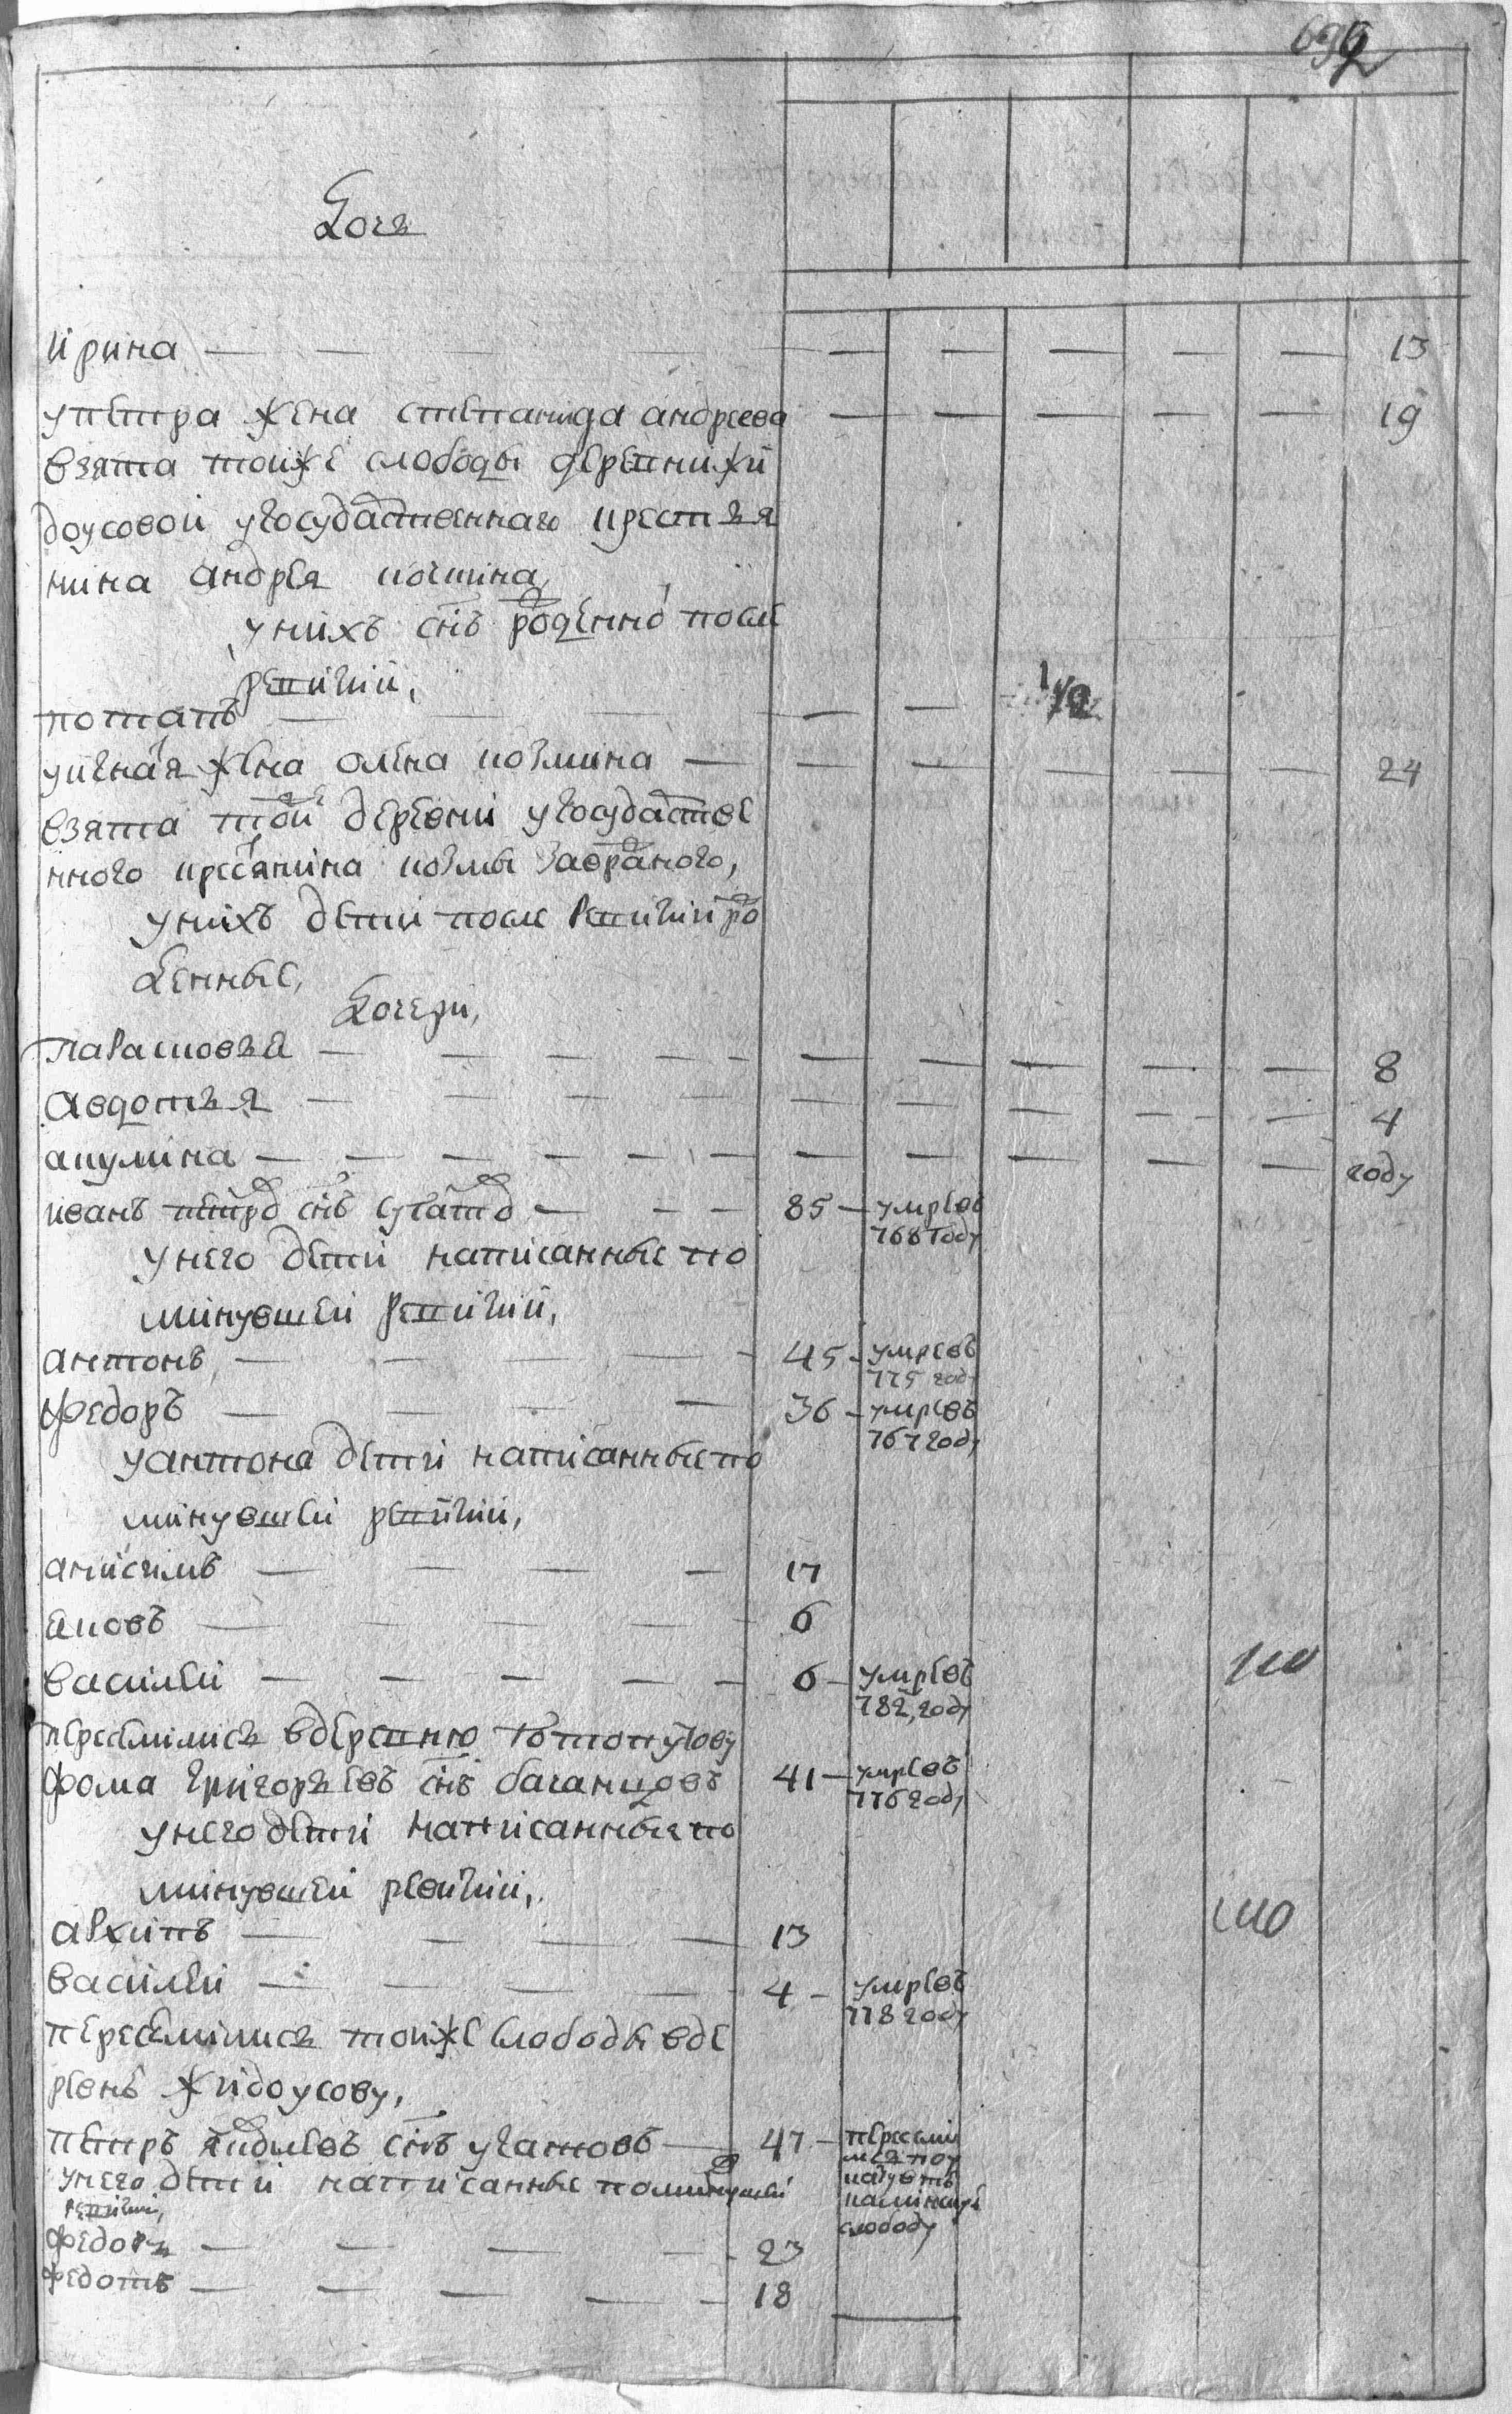 692
Дочь
ирина — — — — — — 13
упетра жена степанида андреева — — — — — 19
взята тойже слободы деревнижи
доусовой угосударственнаго крестья
нина андрея
унихъ снъ рожденно после
ревизии,
потапъ — — — 1/2
унеиа жена олена козмина — — — — — — 24
взята той деревни угосударстве
нного крестянина козмы
унихъ дети после ревизии ро
жденные,
Дочери,
парасковья — — — — — — 8
авдотья — — — — — — 4
акулина — — — — — — году
иванъ петров снъ — — — 85 — умре въ
768 году
унего дети написанные по
минувшей ревизии,
антонъ — — — — 45 — умре въ
775 году
федоръ — — — 36 — умре въ
767 году
уантона дети написанные по
минувшей ревизии,
анисимъ — — — — 17
яковъ — — — — 6
василей — — — — — 6 — умре въ
782, году
переселились вдеревню
фома григорьевъ снъ баганцовъ 41 — умре въ
776 году
унего дети написанныя по
минувшей ревизии,
архипъ — — — — 13
василей — — — — 4 — умре въ
778 году
переселились тойже слободы вде
ревнь жидоусову,
петръ снъ — 47 — пересели
лся по
слободу
унего дети написанные поминувшей
ревизии,
федоръ — — — — 23
федотъ — — — — — 18